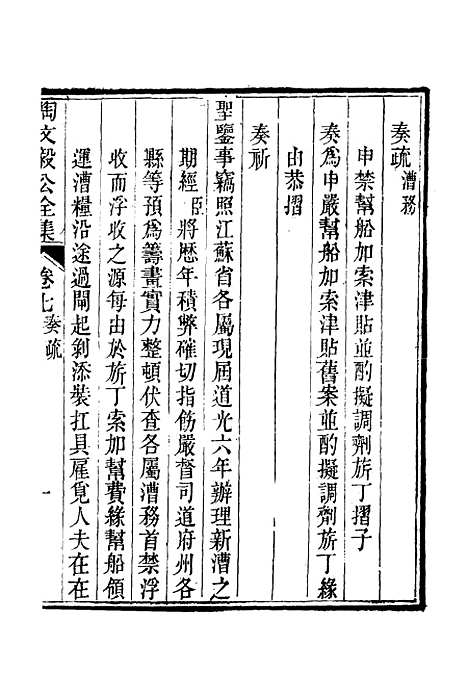 奏疏漕務
申禁幫船加索津貼並酌擬調劑旂丁摺子
奏為申嚴幫船加索津貼舊案並酌擬調劑旂丁緣
由恭摺
奏祈
聖鑒事竊照江蘇省各屬現屆道光六年辦理新漕之
期經臣將歷年積弊確切指飭嚴督司道府州各
縣等預為籌畫實力整頓伏查各屬漕務首禁浮
收而浮收之源每由於旂丁索加幫費緣幫船領
運漕糧沿途過閘起剝添裝扛具雇覓人夫在在
陶文毅公全集 卷七奏疏 一